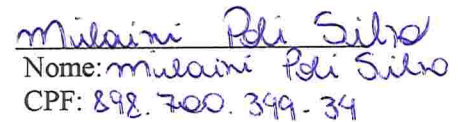 Mulaini Poli Silva
Nome: Mulaini Poli Silva
CPF: 898.700.399-34